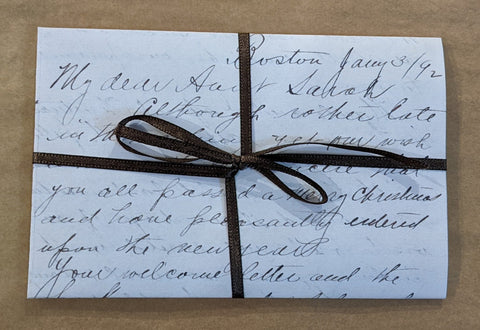 Boston Jany 3/92
My dear Aunt Sarah
Although rather late
in the wish
that
you all passed a merry Christmas
and have pleasantly entered
upon the new year
Your welcome letter and the